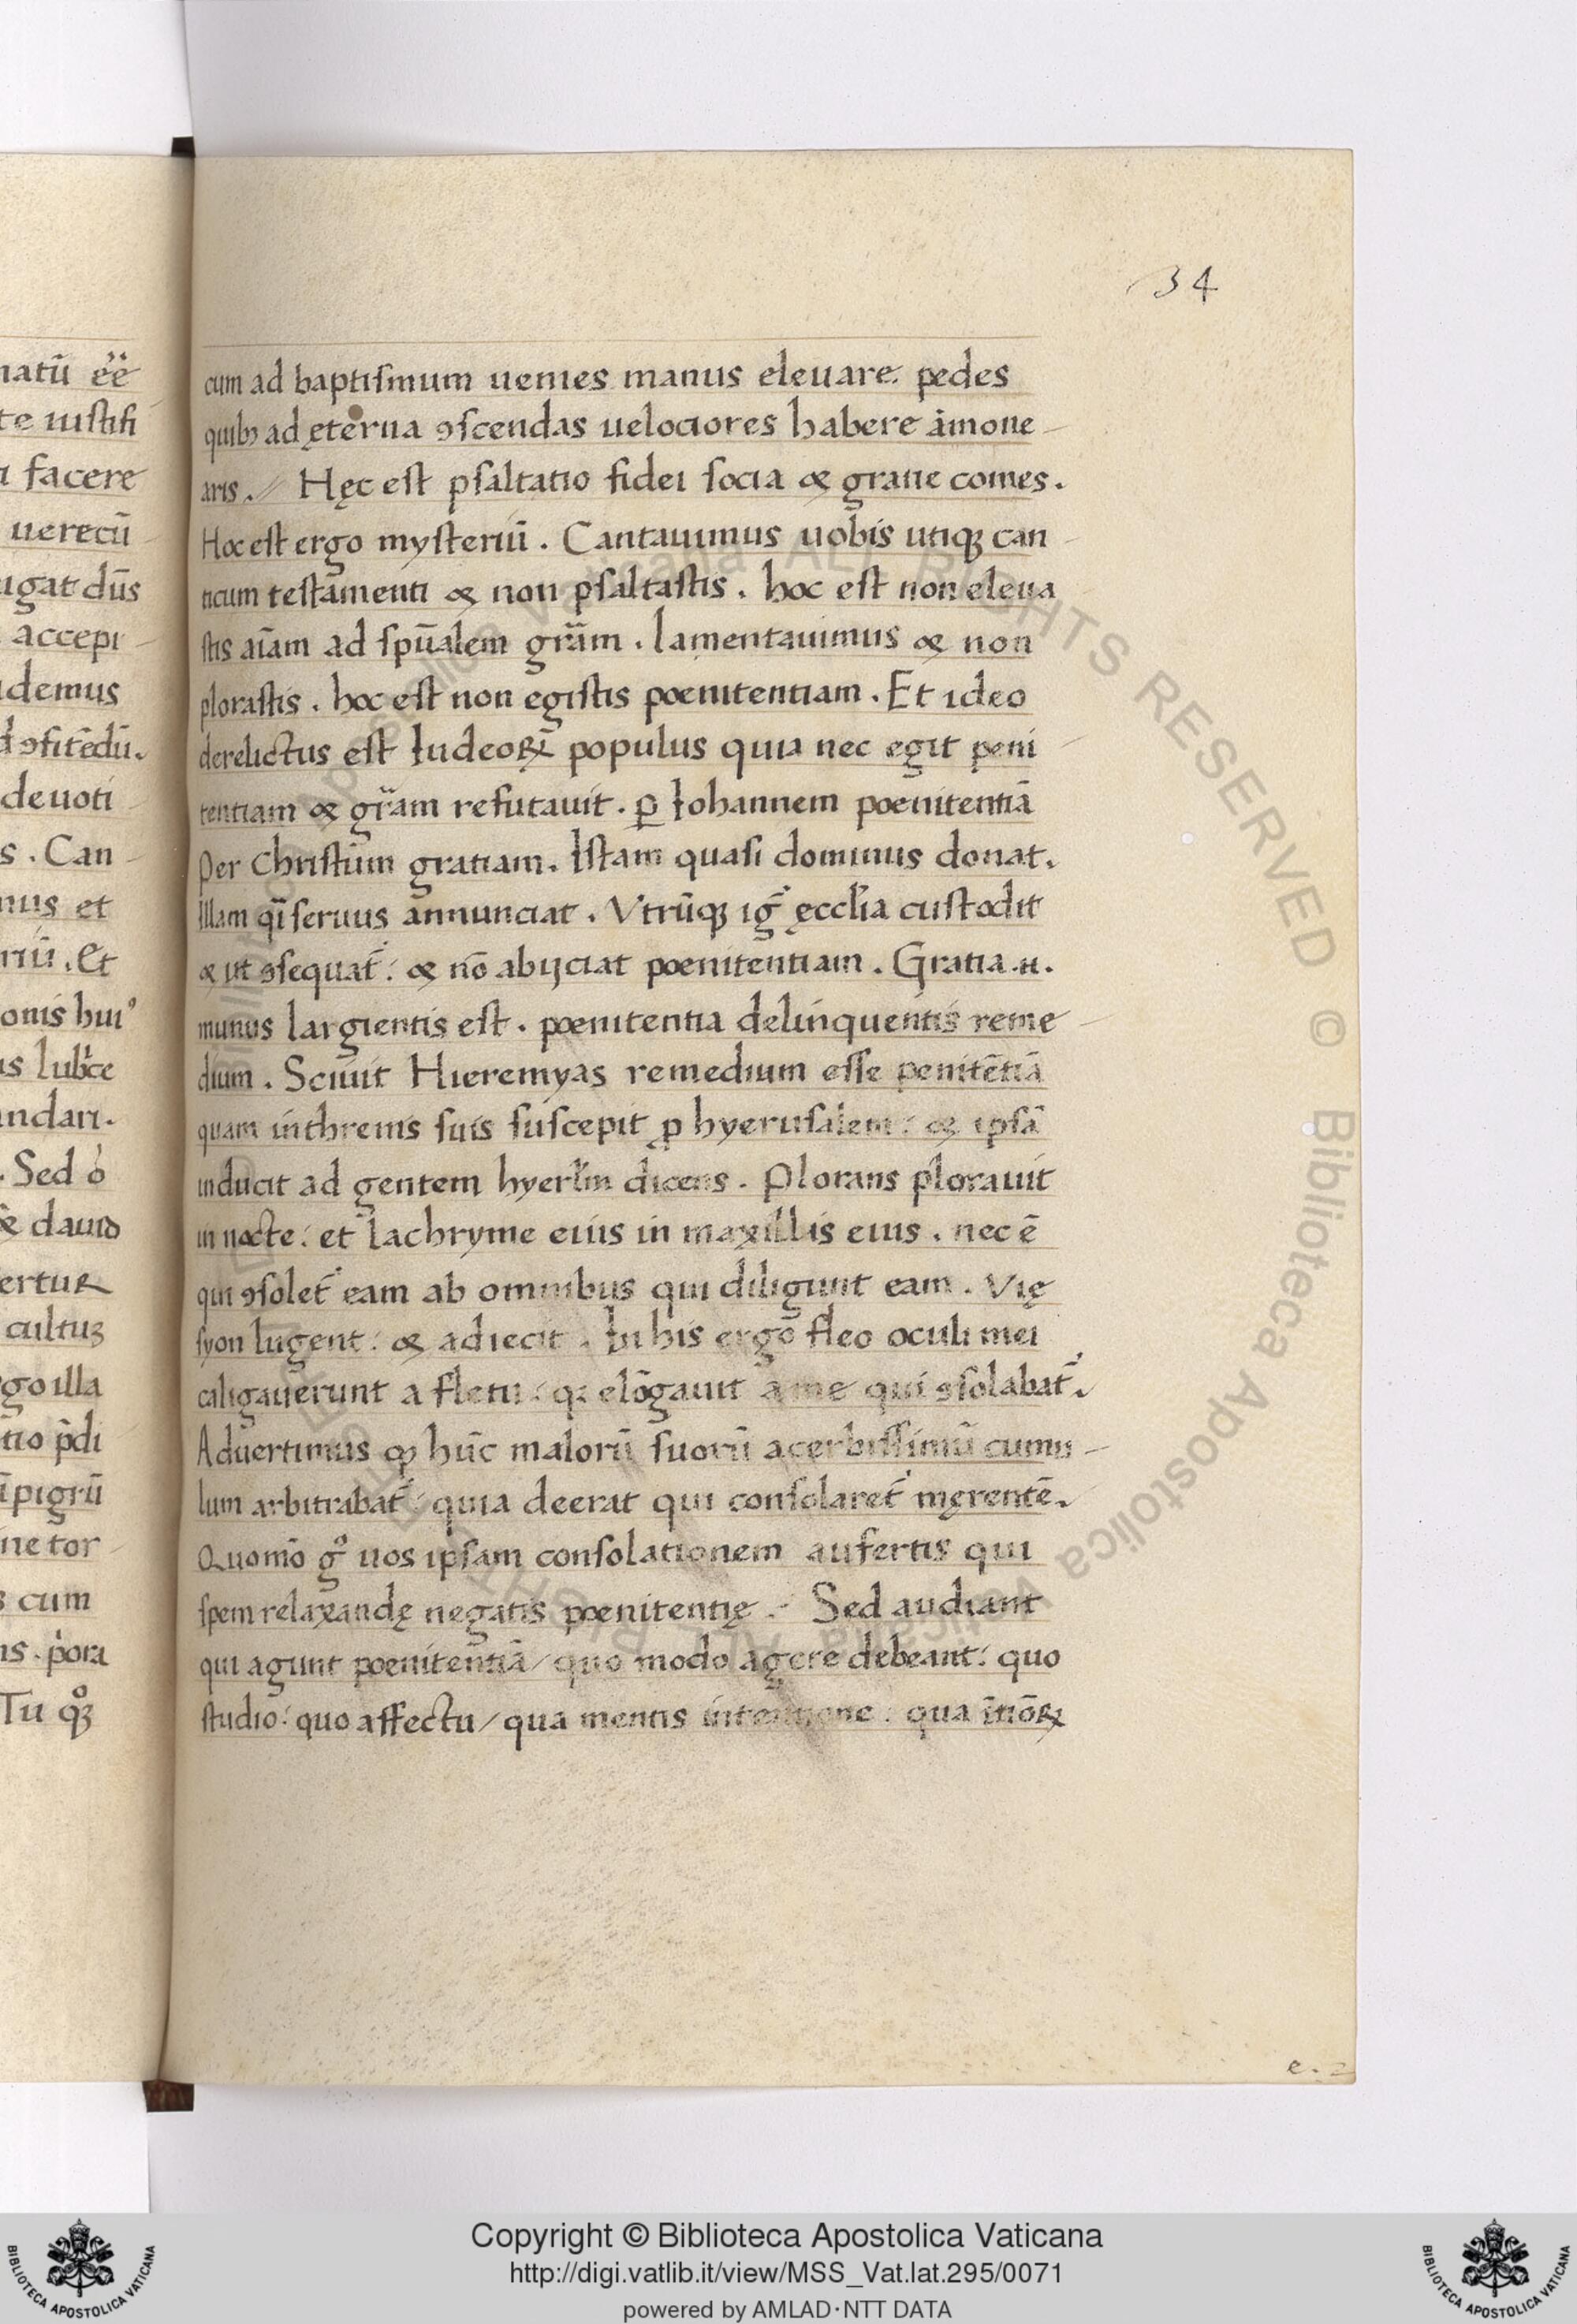 34
natū ēē
te iustifi
facere
uerecū
ugat dn̄s
accepi
demus
ꝯfitēdū.
deuoti
s. Can
mus et
riū. Et
onis huiꝰ
us lubͨce
andari.
. Sed ò
& dauid
ertur
cultuȝ
go illa
tio p̄di
īpigrū
ne tor
s cum
ns. p̓ora
Tu qͦꝫ
cum ad baptismum uenies manus eleuare. pedes
quibꝫ ad ęterna ꝯscendas uelociores habere am̄one
aris. / Hęc est psaltatio fidei socia & gratie comes.
Hoc est ergo mysteriū. Cantauimus uobis utiqꝫ can
ticum testamenti & non psaltastis. hoc est non eleua
stis aīam ad spūalem grām. lamentauimus & non
plorastis. hoc est non egistis poenitentiam. Et ideo
derelictus est Iudeoꝝ populus quia nec egit peni
tentiam & grām refutauit. ꝑ Iohannem poenitentiā
Per Christum gratiam. Istam quasi dominus donat.
Illam qī seruus annunciat. Vtrūqꝫ ig̓ ęcclīa custodit
& ut ꝯsequat̄: & nō abijciat poenitentiam. Gratia .n.
munus largientis est. poenitentia delinquentis reme
dium. Sciuit Hieremyas remedium esse penitētiā
quam inthrenis suis suscepit ꝓ hyerusalem: & ipsā
inducit ad gentem hyerlm̄ dicens. Plorans plorauit
in nocte: et lachryme eius in maxillis eius. nec ē
qui ꝯsolet̄ eam ab omnibus qui diligunt eam. Vię
syon lugent: & adiecit. In his ergo fleo oculi mei
caligauerunt a fletu: qꝫ elōgauit a me qui ꝯsolabat̄.
Aduertimus qꝫ hūc malorū suorū acerbissimū cumu
lum arbitrabat̄: quia deerat qui consolaret̄ męrentē.
Quomō gͦ uos ipsam consolationem aufertis qui
spem relaxandę negatis poenitentię. Sed audiant
qui agunt poenitentiā / quo modo agere debeant: quo
studio: quo affectu / qua mentis intentione: qua īnōꝝ
e. 2
Copyright © Biblioteca Apostolica Vaticana
http://digi.vatlib.it/view/MSS_Vat.lat.295/0071
powered by AMLAD·NTT DATA
BIBLIOTECA APOSTOLICA VATICANA
BIBLIOTECA APOSTOLICA VATICANA